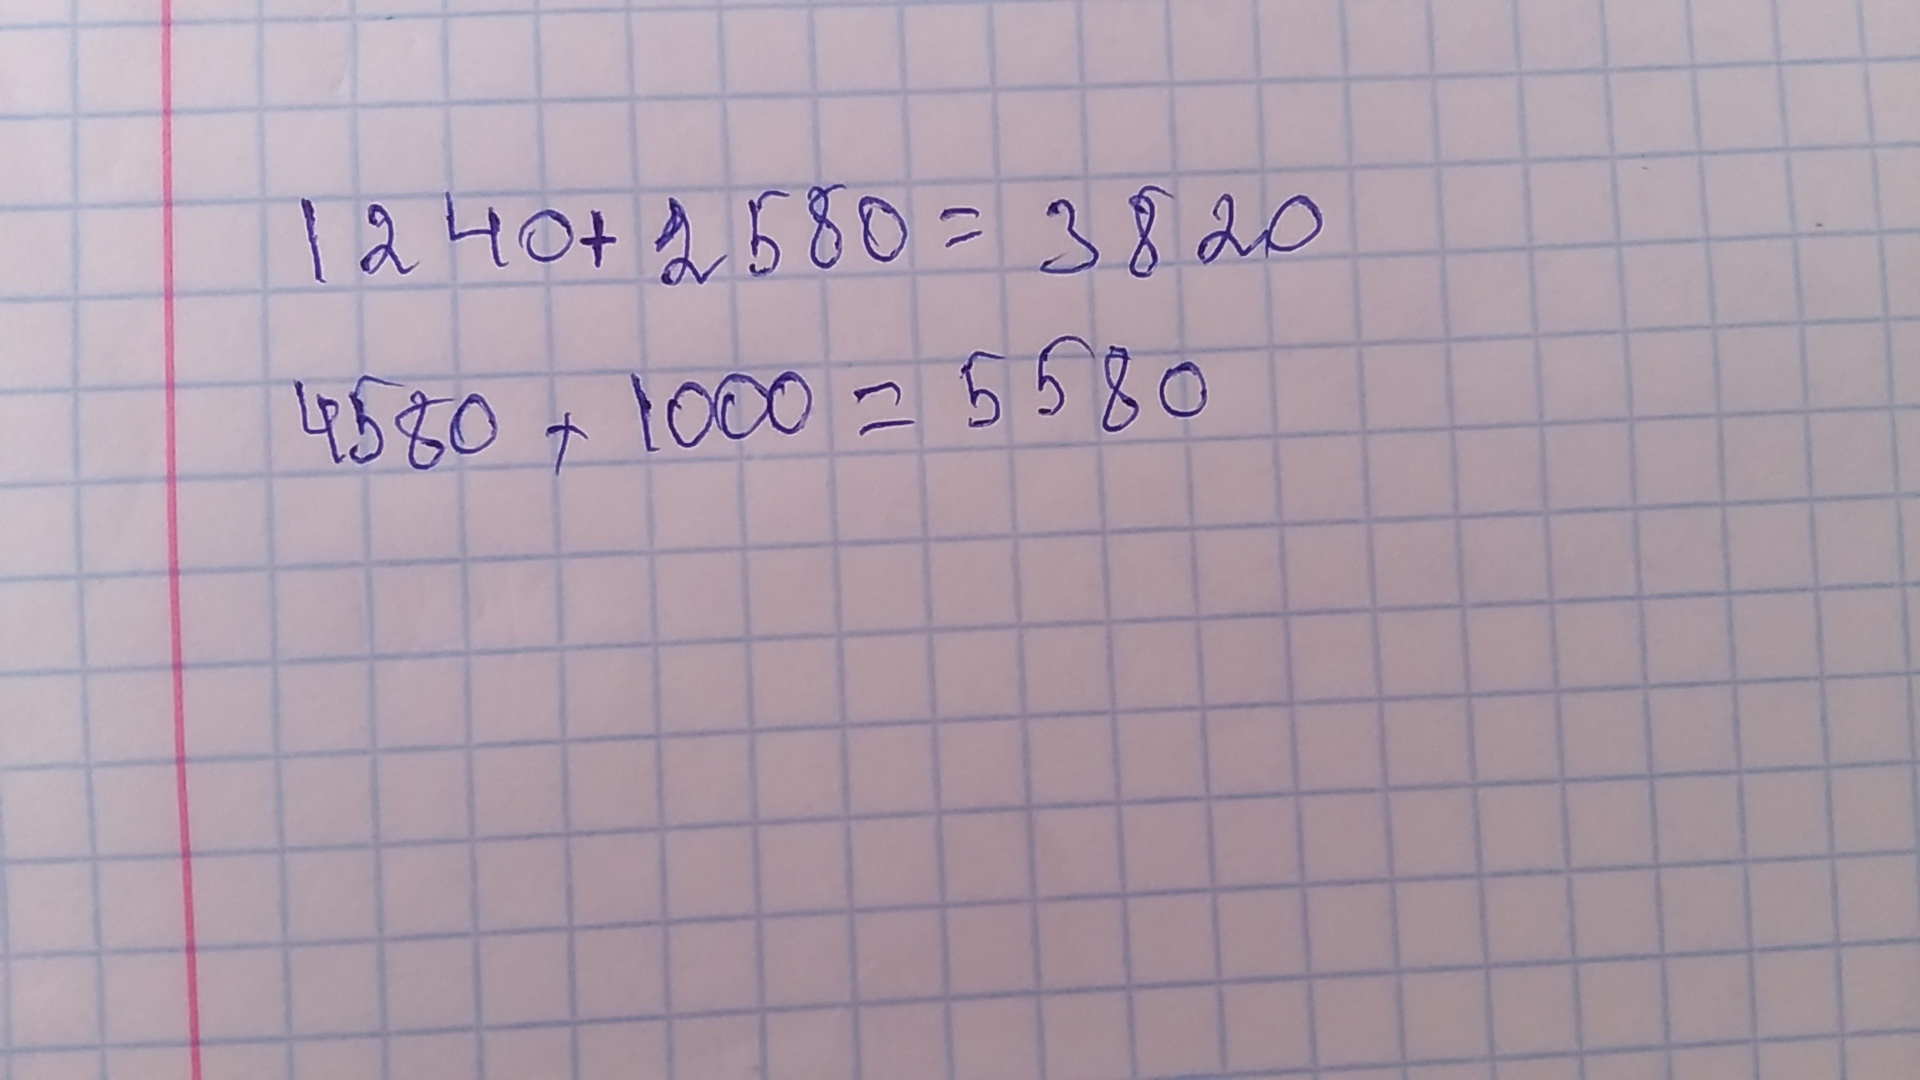 1240+2580=3820
4580+1000=5580